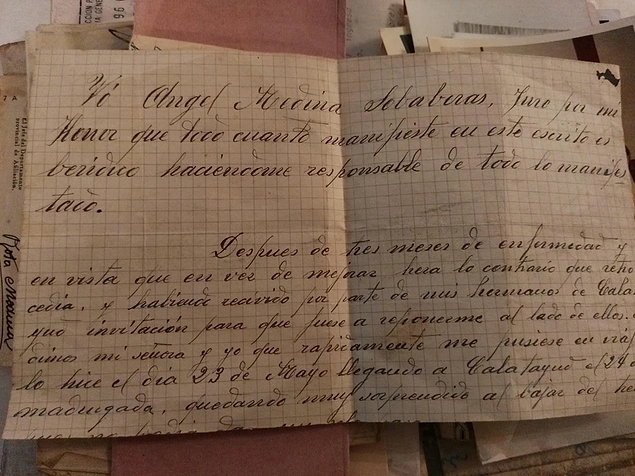 Yó Angel Medina Sobaberas, Juro por mi
Honor que todo cuanto manifieste en este escrito es
beridico haciendome responsable de todo lo manifes
tado.
Despues de tres meses de enfermedad y
en vista que en vez de mejorar hera lo contrario que retro
cedia, y habiendo recivido por parte de mis hermanos de Cala
yud invitación para que fuese a reponerme al lado de ellos.
dimos mi señora y yo que rapidamente me pusiese en
lo hice el dia 23 de Mayo llegando a Calatayud el 24 d
madrugada, quedando muy sorprendido al bajar del
El Jefe del Departamento
provincial de Afiliación,
Nota